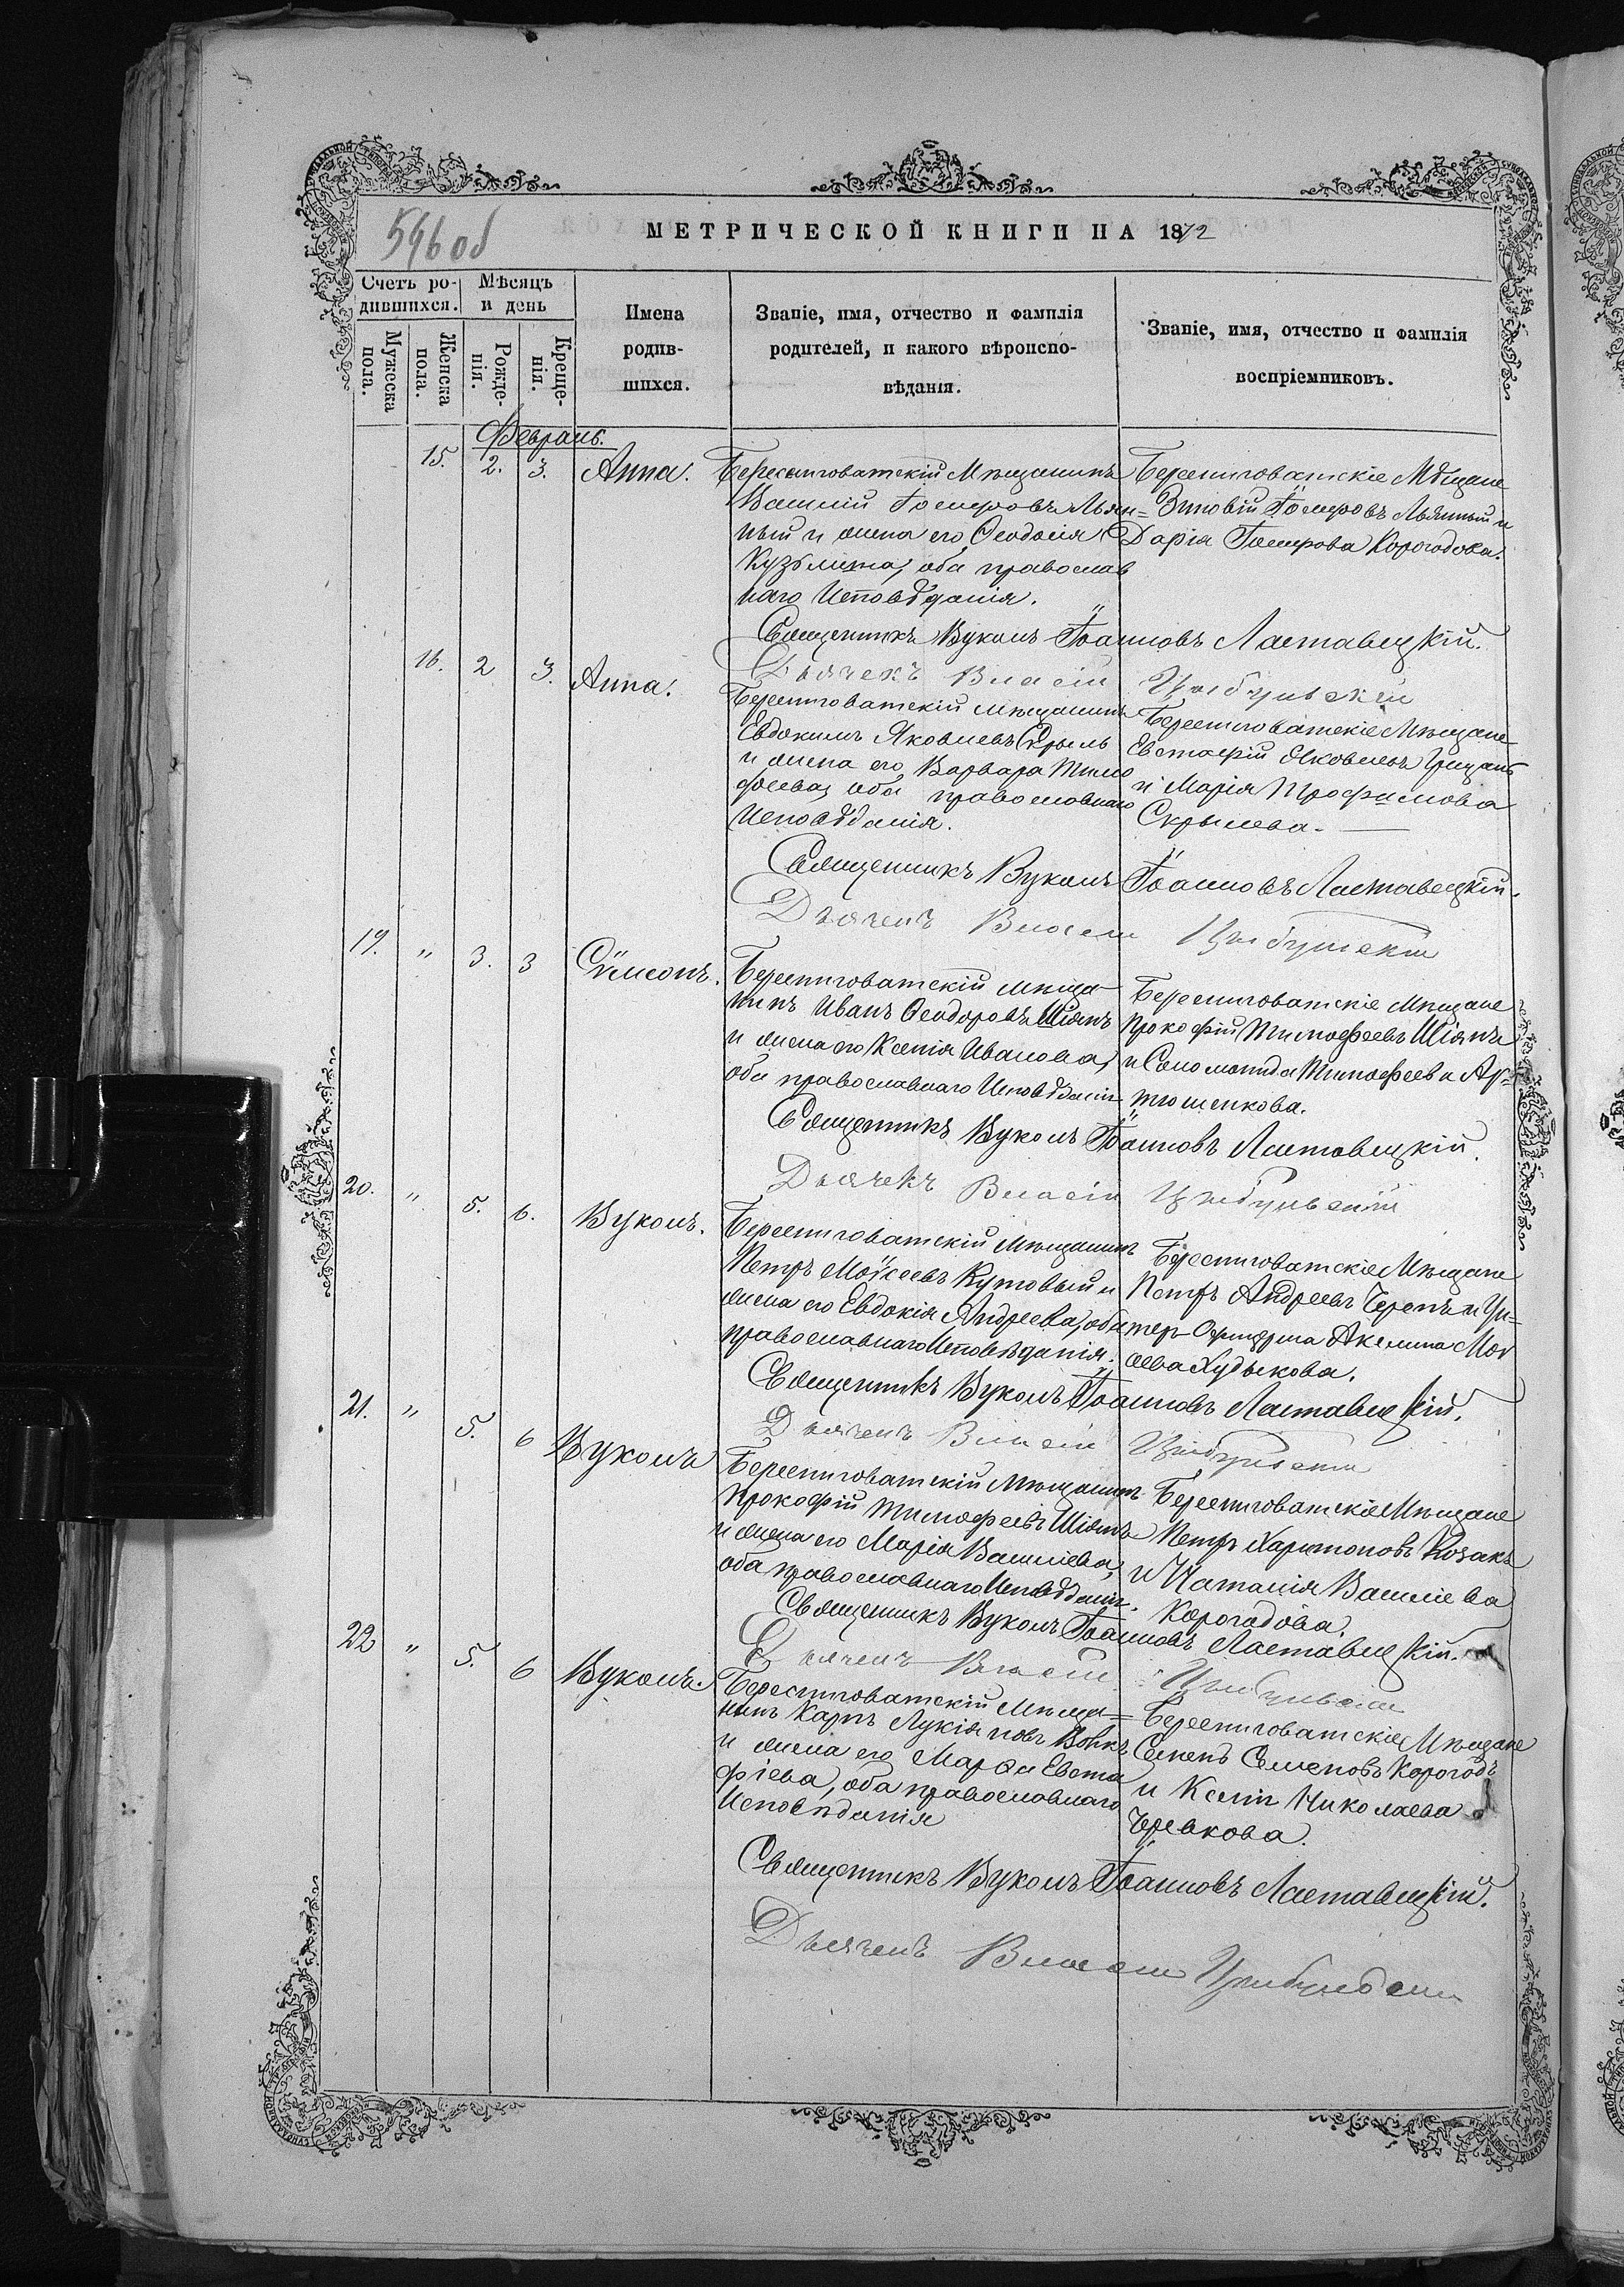 596 об
МЕТРИЧЕСКОЙ КНИГИ НА 1872
Счетъ ро-
дившихся.
Мѣсяцъ
и день
Мужеска
пола.
Женска
пола.
Рожде-
нія.
Креще-
нія.
Имена
родив-
шихся.
Званіе, имя, отчество и фамилія
родителей, и какого вѣроиспо-
вѣданія.
Званіе, имя, отчество и фамилія
воспріемниковъ.
Февраль.
15. 2. 3. Анна.
Берестоватскій Мѣщанинъ
Василій Петровъ Льян=
ный и жена его Ѳеодосія
Кузьмина, оба православ
наго Исповѣданія.
Берестоватскіе Мѣщане
Зиновій Петровъ Льяный и
Дарія Петрова Корогодова.
Священникъ Вуколъ Іоанновъ Ластавецкій.
Дьячекъ Власій Цыбульскій
16. 2 3. Анна.
Берестоватскій мѣщанинъ
Евдокимъ Яковлевъ Скрыль
и жена его Варвара Тимо
феева, оба православнаго
Исповѣданія.
Берестоватскіе Мѣщане
Евстафій Яковлевъ Грицай
и Марія Трофимова
Скрылева.
Священникъ Вуколъ Іоанновъ Ластавецкій.
Дьячекъ Власій Цыбульскій
19. " 3. 3 Сѵмеонъ.
Берестоватскій мѣща
нинъ Иванъ Ѳеодоровъ Шіянъ
и жена его Ксенія Иванова,
оба православнаго Исповѣданія
Берестоватскіе Мѣщане
Прокофій Тимофеевъ Шіянъ
и Соломонида Тимофеева Ар=
тюшенкова.
Священникъ Вуколъ Іоанновъ Ластавецкій.
Дьячекъ Власій Цыбульскій
20. " 5. 6. Вуколъ.
Берестоватскій Мѣщанинъ
Петръ Мойсеевъ Кутовый и
жена его Евдокія Андреева, оба
православнаго Исповѣданія.
Берестоватскіе Мѣщане
Петръ Андреевъ Черепъ и Ун=
теръ-Офицерша Акилина Мой
сеева Худыкова.
Священникъ Вуколъ Іоанновъ Ластавецкій.
Дьячекъ Власій Цыбульскій
21. " 5. 6 Вуколъ
Берестоватскій Мѣщанинъ
Прокофій Тимофеевъ Шіянъ
и жена его Марія Василіева,
оба православнаго Исповѣданія.
Берестоватскіе Мѣщане
Петръ Харитоновъ Козакъ
и Наталія Василіева
Корогодова.
Священникъ Вуколъ Іоанновъ Ластавецкій.
Дьячекъ Власій Цыбульскій
22 " 5. 6 Вуколъ.
Берестоватскій Мѣща=
нинъ Карпъ Лукіяновъ Вовкъ
и жена его Марѳа Евста
фіева, оба православнаго
Исповѣданія
Берестоватскіе Мѣщане
Семенъ Семеновъ Корогодъ
и Ксенія Николаева
Чревкова.
Священникъ Вуколъ Іоанновъ Ластавецкій.
Дьячекъ Власій Цыбульскій